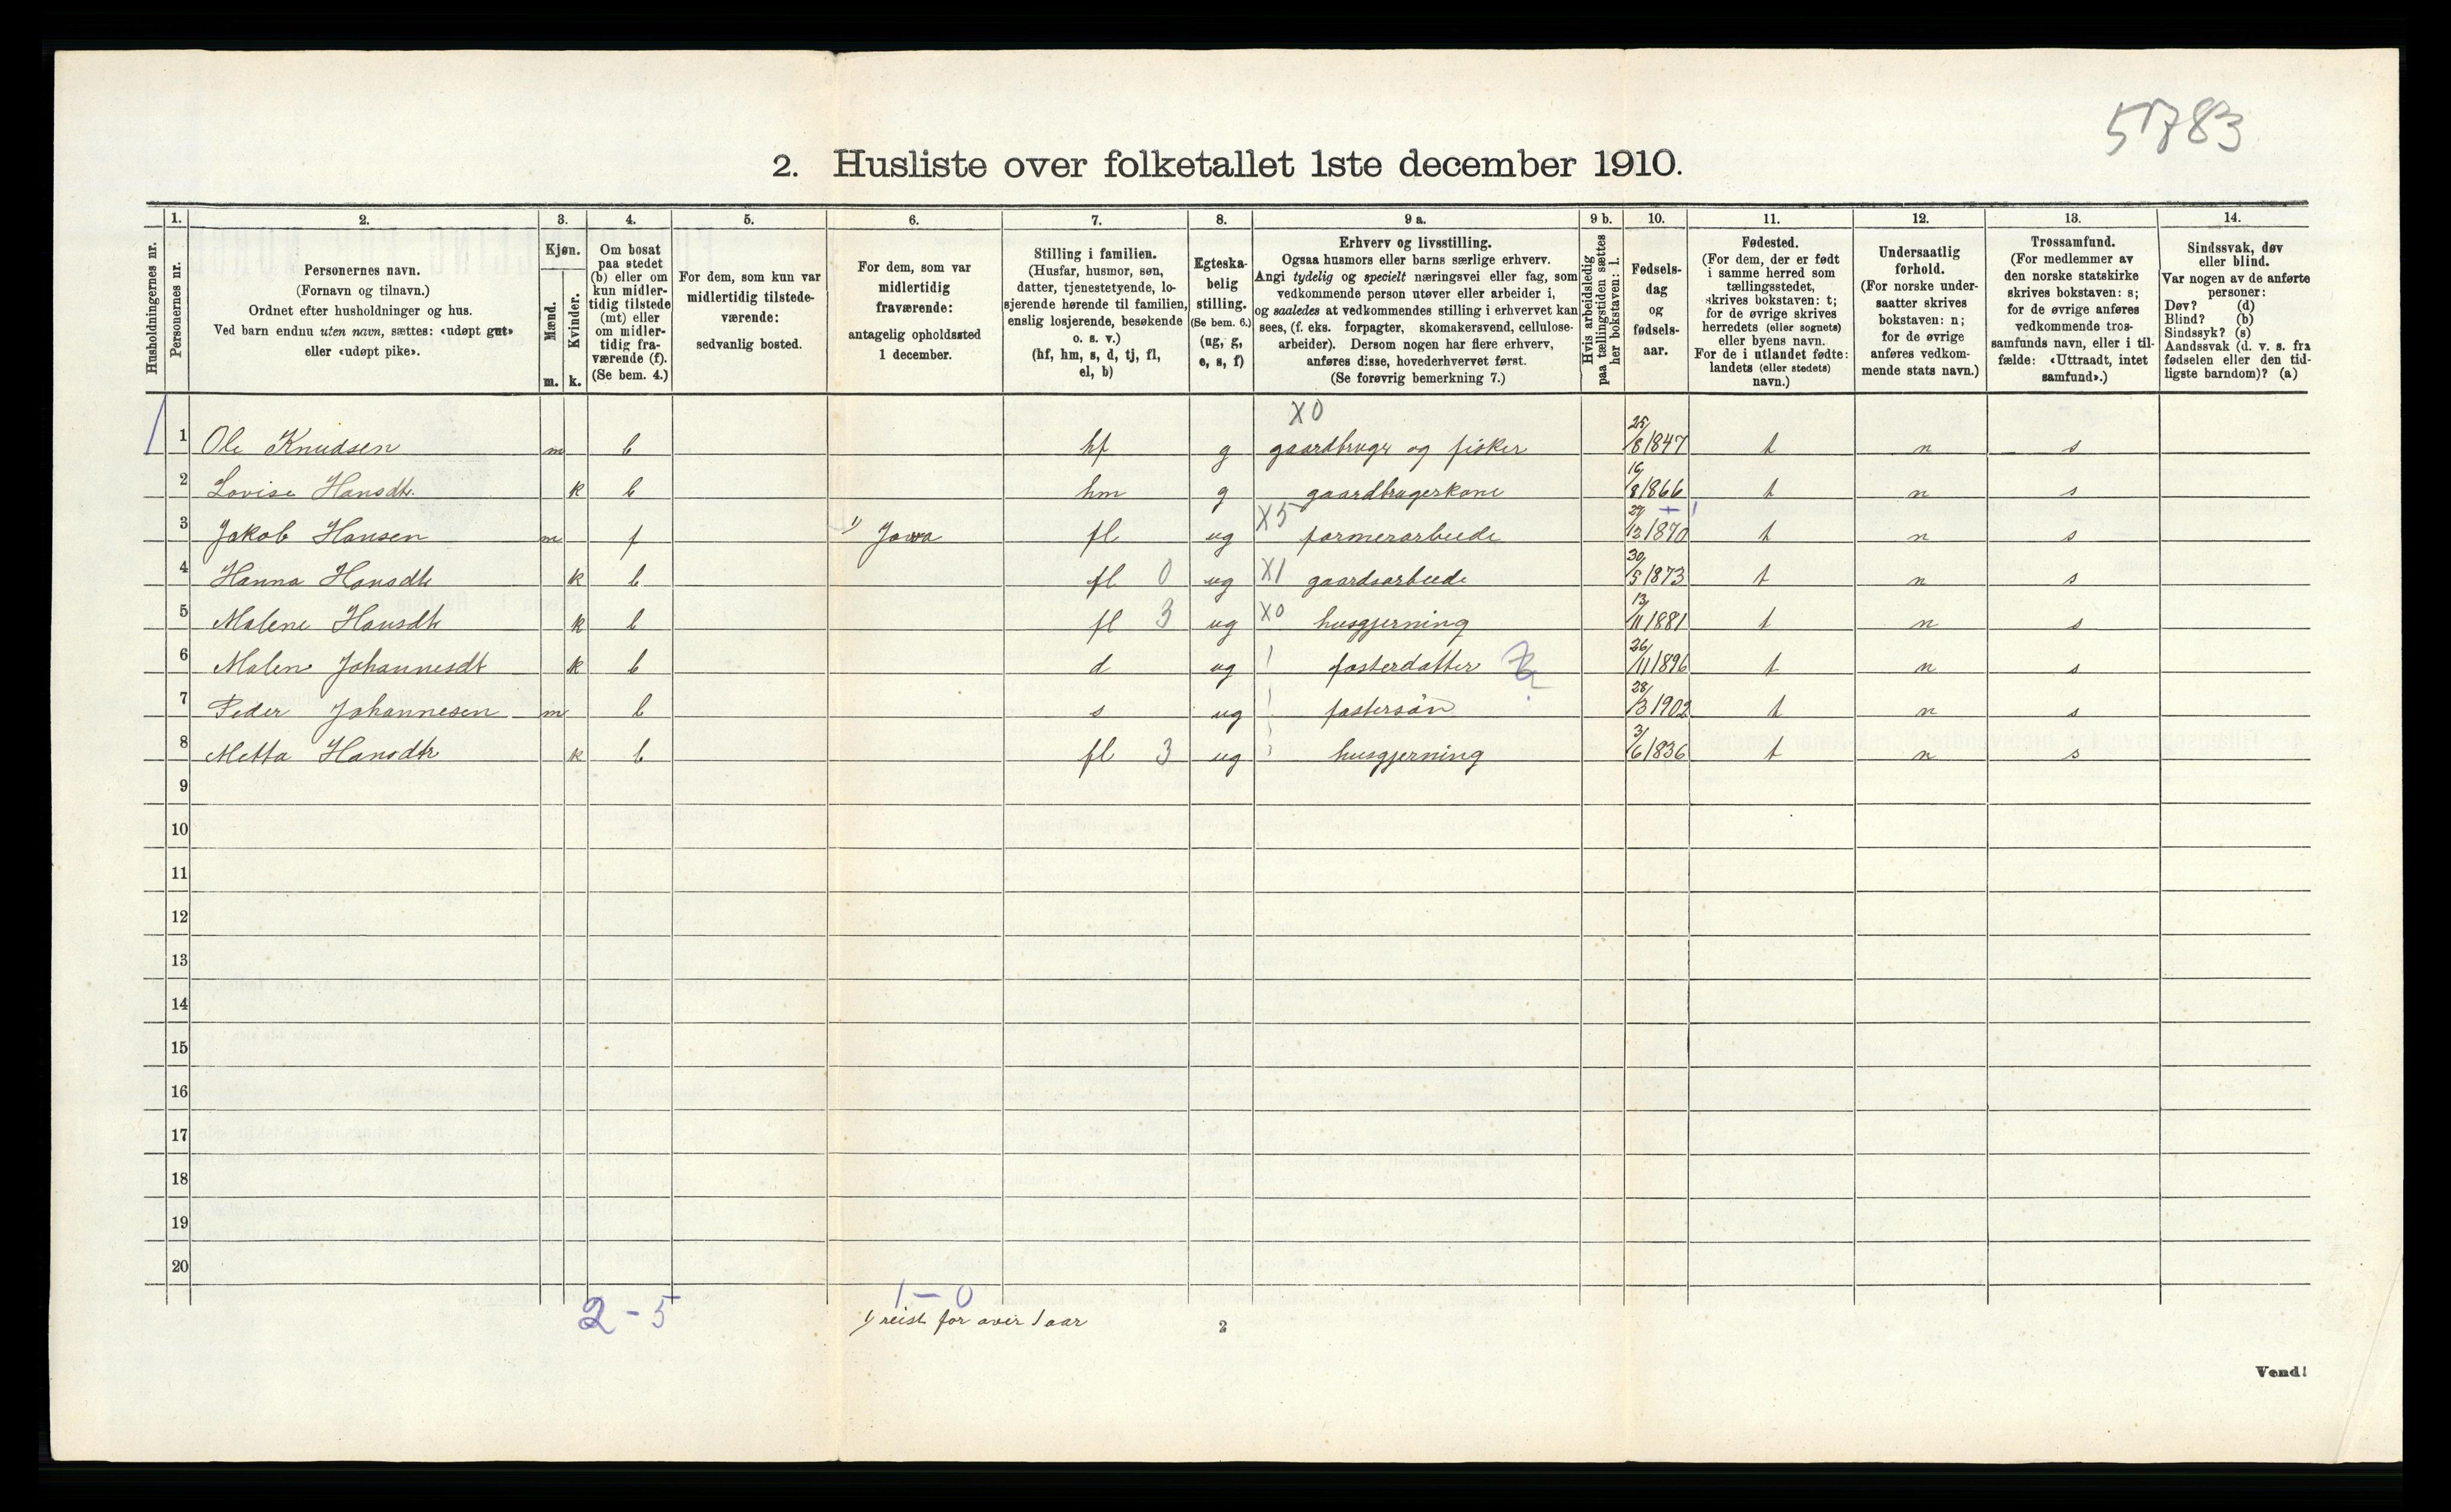 5783
2. Husliste over folketallet 1ste december 1910.
Husholdningernes nr.
1. Personernes nr.
2. Personernes navn. (Fornavn og tilnavn.) Ordnet efter husholdninger og hus. Ved barn endnu uten navn, sættes: «udøpt gut» eller «udøpt pike».
3. Kjøn. Mænd. m. Kvinder. k.
4. Om bosat paa stedet (b) eller om kun midlertidig tilstede (mt) eller om midlertidig fraværende (f). (Se bem. 4.)
5. For dem, som kun var midlertidig tilstedeværende: sedvanlig bosted.
6. For dem, som var midlertidig fraværende: antagelig opholdssted 1 december.
7. Stilling i familien. (Husfar, husmor, søn, datter, tjenestetyende, losjerende hørende til familien, enslig losjerende, besøkende o. s. v.) (hf, hm, s, d, tj, fl, el, b)
8. Egteskabelig stilling. (Se bem. 6.) (ug, g, e, s, f)
9 a. Erhverv og livsstilling. Ogsaa husmors eller barns særlige erhverv. Angi tydelig og specielt næringsvei eller fag, som vedkommende person utøver eller arbeider i, og saaledes at vedkommendes stilling i erhvervet kan sees, (f. eks. forpagter, skomakersvend, cellulosearbeider). Dersom nogen har flere erhverv, anføres disse, hovederhvervet først. (Se forøvrig bemerkning 7.)
9 b. Hvis arbeidsledig paa tællingstiden sættes her bokstaven: l.
10. Fødselsdag og fødselsaar.
11. Fødested. (For dem, der er født i samme herred som tællingsstedet, skrives bokstaven: t; for de øvrige skrives herredets (eller sognets) eller byens navn. For de i utlandet fødte: landets (eller stedets) navn.)
12. Undersaatlig forhold. (For norske undersaatter skrives bokstaven: n; for de øvrige anføres vedkommende stats navn.)
13. Trossamfund. (For medlemmer av den norske statskirke skrives bokstaven: s; for de øvrige anføres vedkommende trossamfunds navn, eller i tilfælde: «Uttraadt, intet samfund».)
14. Sindssvak, døv eller blind. Var nogen av de anførte personer: Døv? (d) Blind? (b) Sindssyk? (s) Aandssvak (d. v. s. fra fødselen eller den tidligste barndom)? (a)
X0
1 Ole Knudsen m b hf g gaardbruger og fisker 25/8 1847 t n s
2 Lovise Hansdtr. k b hm g gaardbrugerkone 16/8 1866 t n s
3 Jakob Hansen m f 1) Jowa fl ug X5 farmerarbeide 27/12 1870 t n s
4 Hanna Hansdtr k b fl 0 ug X1 gaardsarbeide 30/5 1873 t n s
5 Malene Hansdtr k b fl 3 ug X0 husgjerning 13/11 1881 t n s
6 Malene Johannesdt k b d ug fosterdatter 26/11 1896 t n s
7 Peder Johannesen m b s ug fostersøn 28/3 1902 t n s
8 Metta Hansdtr k b fl 3 ug husgjerning 3/6 1836 t n s
9
10
11
12
13
14
15
16
17
18
19
20
2 - 5
1 - 0
1) reist for over 1 aar
2
Vend!